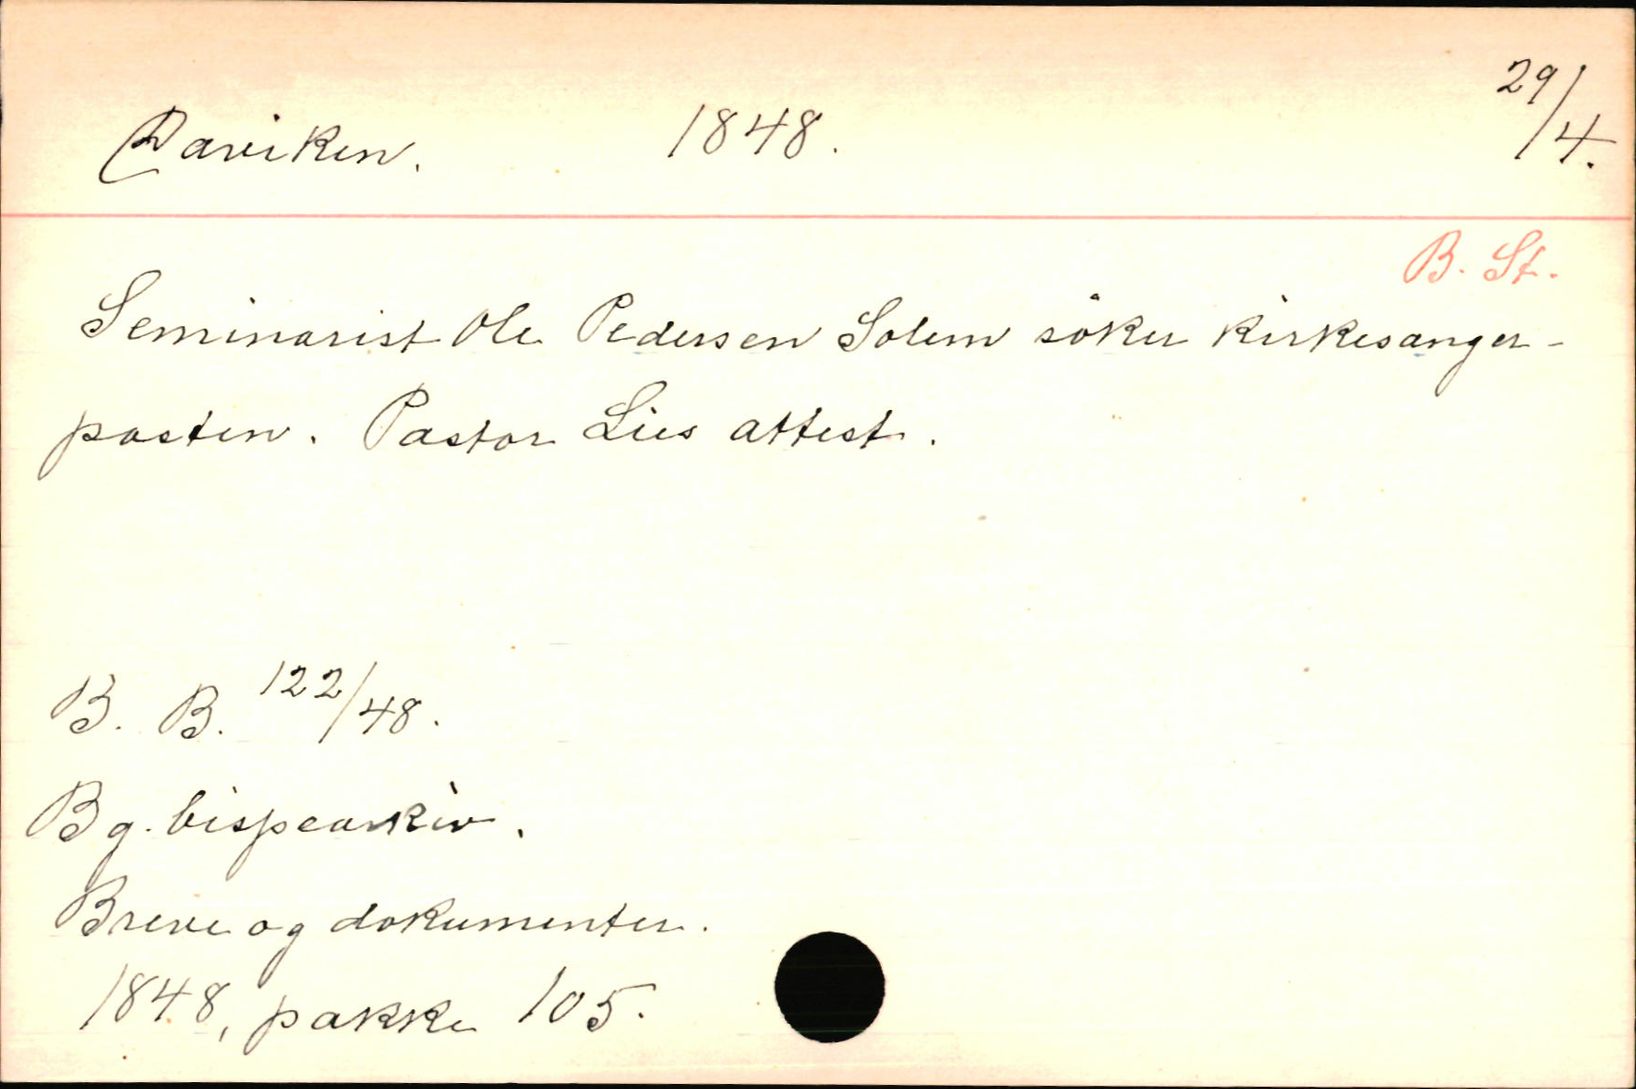 Daviken. 1848. 29/4.
B. St.
Seminarist Ole Pedersen Solem söker kirkesanger-
posten. Pastor Lies attest.
B. B. 122/48.
Bg. bispearkiv.
Breve og dokumenter.
1848, pakke 105.